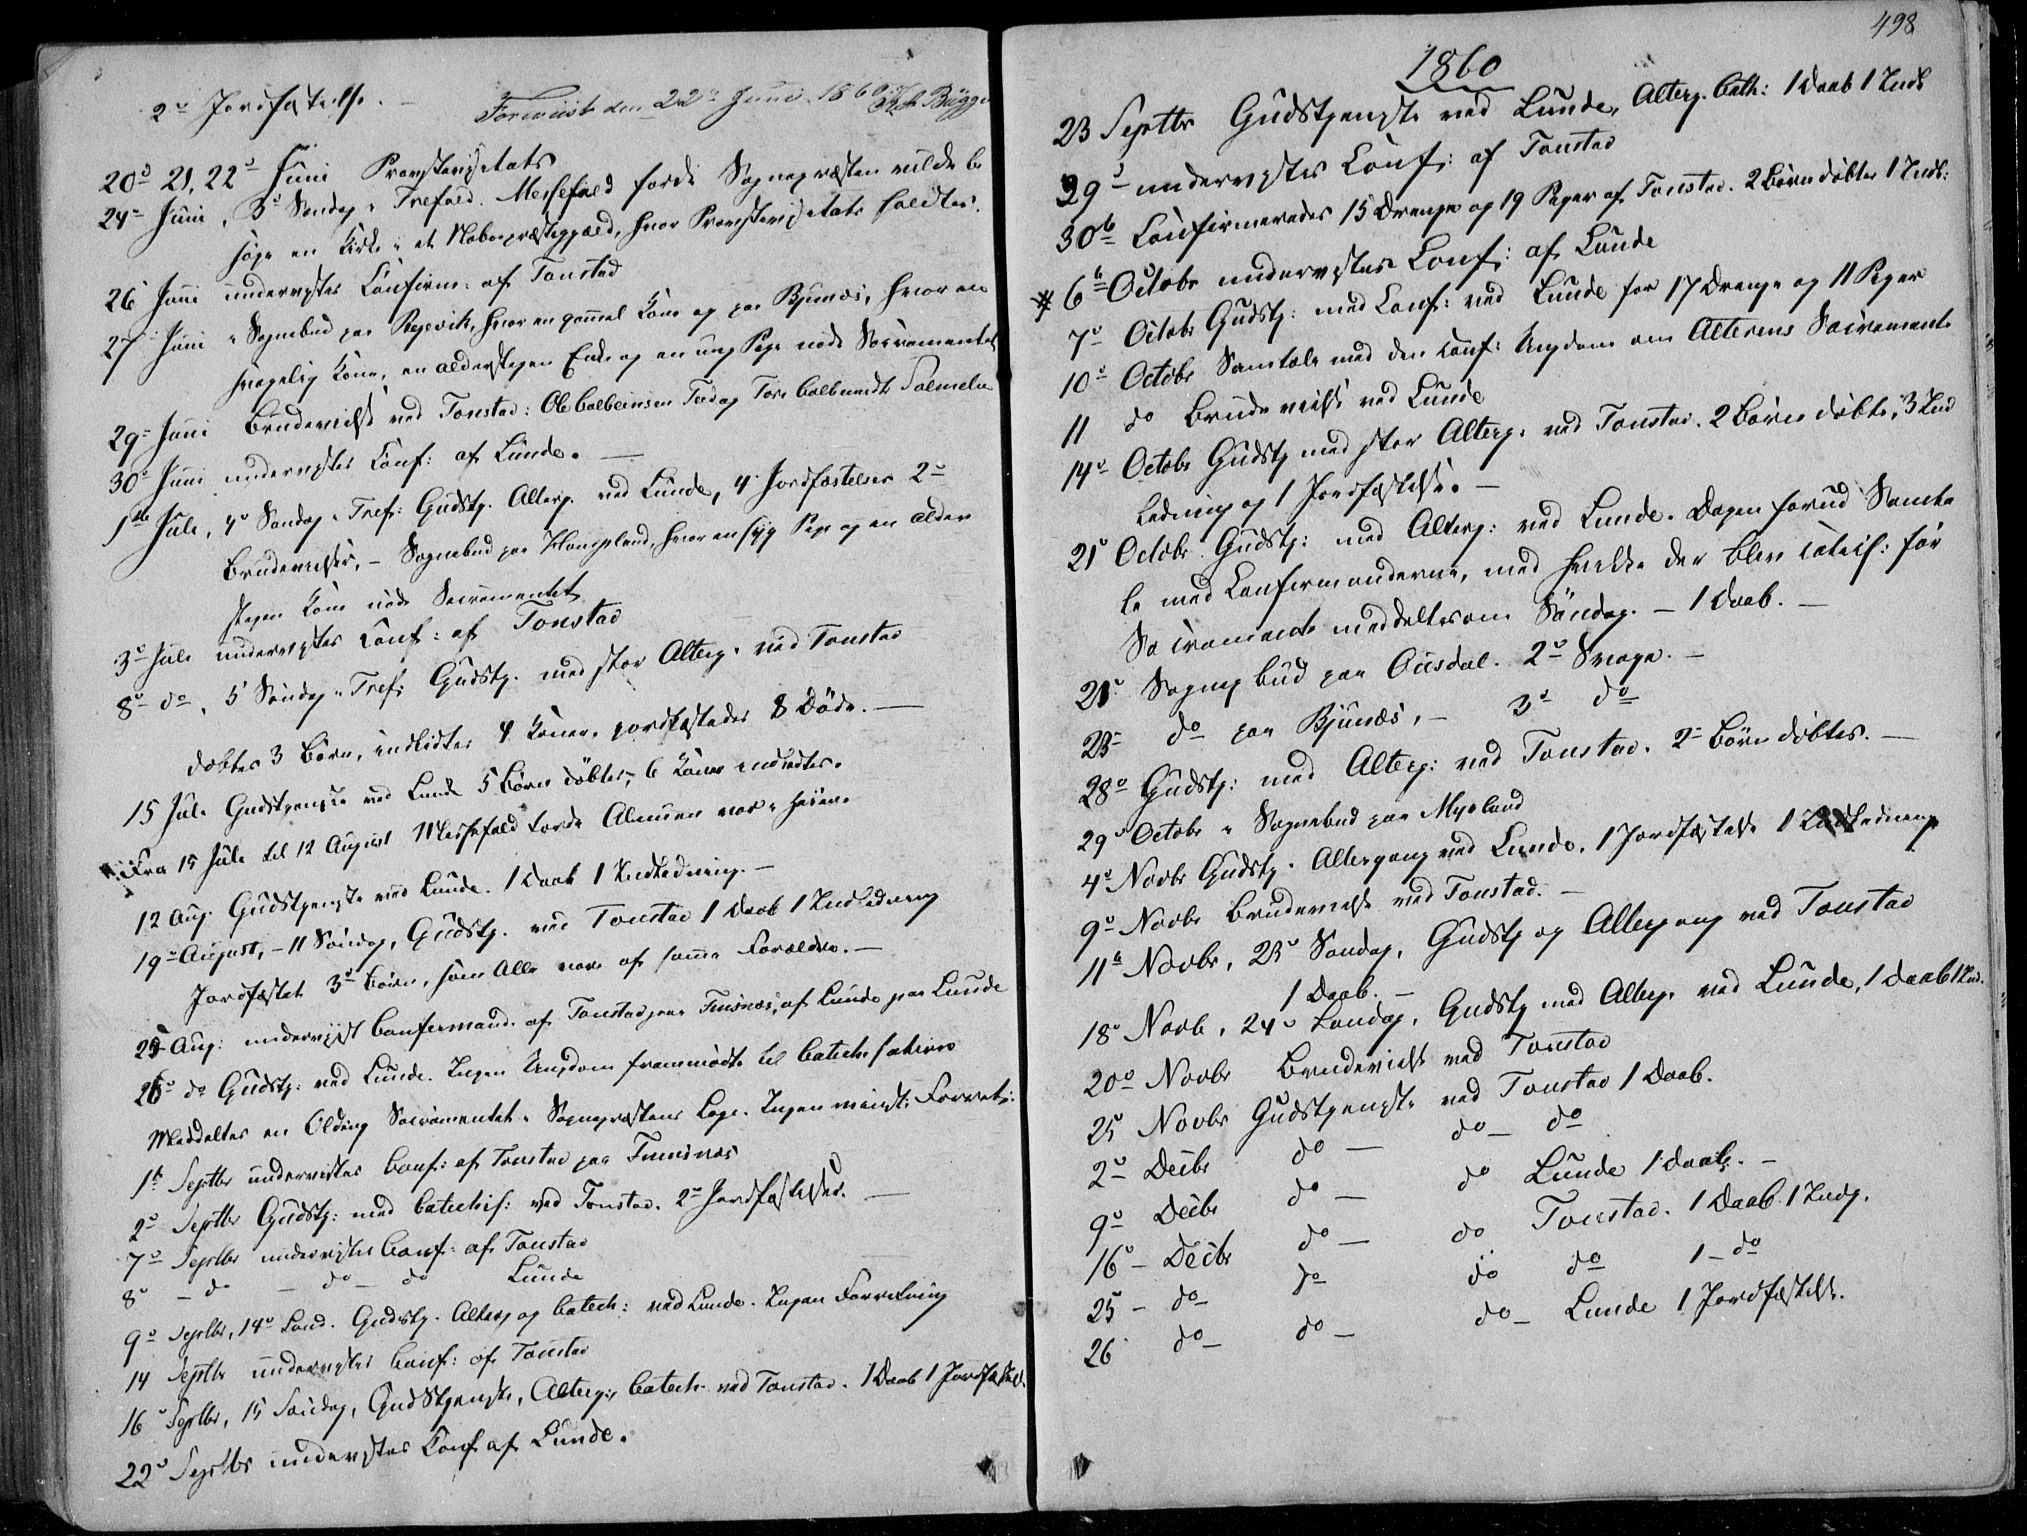 2de Jordfæstelse. —
Foreviist den 22de Juni 1860. Bugge
20de 21, 22de Juni Provstevisitats
24de Juni, 3de Søndag e. Trefold. Messefald fordi Sognepræsten vilde be
søge en Kirke i et Nabopræstegjæld, hvor Provstevisitats holdtes.
26 Juni undervistes Confirm: af Tonstad
27 Juni i Sognebud paa Regevik, hvor en gammel Kone og paa Bjunæs, hvor en
svagelig Kone, en alderstegen Enke og en ung Pige nøde Sacramentet
29de Juni Brudevielse ved Tonstad: Ole
30de Juni undervistes Conf: af Lunde. —
1ste Juli, 4de Søndag e. Tref: Gudstj. Alterg. ved Lunde, 4 Jordfæstelser 2de
Brudevielser, — Sognebud paa Haugeland, hvor en syg Pige og en alder
stegen Kone nøde Sacramentet
3de Juli undervistes Conf: af Tonstad
8de do, 5 Søndag e. Tref: Gudstj. med stor Alterg. ved Tonstad
døbtes 3 Børn, indledtes 4 Koner, jordfæstedes 8 Døde. —
15 Juli Gudstjeneste ved Lunde 5 Børn døbtes, 6 Koner indledtes.
Fra 15 Juli til 12 August Messefald fordi Almuen var i Heien.
12 Aug. Gudstjeneste ved Lunde. 1 Daab 1 Indledning. —
19de August, — 11 Søndag, Gudstj. ved Tonstad 1 Daab 1 Indledning
Jordfæstet 3de Børn, som Alle vare af samme Forældre. —
25 Aug: undervist Confirmand. af Tonstad paa Fuusnæs, af Lunde paa Lunde
26de do Gudstj: ved Lunde. Ingen Ungdom fremmødte til Catechisation
Meddeltes en Olding Sacramentet i Sognepræstens Loge. Ingen minist: Forretn:
1te Septbr undervistes Conf: af Tonstad paa Fuusnæs
2de Septbr Gudstj: med Catechis: ved Tonstad. 2de Jordfæstelser. —
7de Septbr undervistes Conf: af Tonstad
8de — do — do — do Lunde
9de Septbr, 14de Sønd. Gudstj. Alterg og Catech: ved Lunde. Ingen Forretning
14 Septbr undervistes Conf: af Tonstad
16de Septbr, 15 Søndag, Gudstjeneste, Alterg., Catech. ved Tonstad. 1 Daab 1 Jordfæstel.
22de Septbr undervistes Conf. af Lunde.
498
1860
23 Septbr Gudstjeneste ved Lunde, Alterg. Cath: 1 Daab 1 Indl
29de undervistes Conf: af Tonstad
30te Confirmeredes 15 Drenge og 19 Piger af Tonstad. 2 Børn døbtes 1 Indl:
6te Octobr undervistes Conf: af Lunde
7de Octobr Gudstj: med Conf: ved Lunde for 17 Drenge og 11 Piger
10de Octobr Samtale med den conf: Ungdom om Alterens Sacramente
11 do Brudevielse ved Lunde
14de Octobr Gudstj med stor Alterg. ved Tonstad. 2 Børn døbte, 3 Ind
ledning og 1 Jordfæstelse. —
21de Octobr Gudstj: med Alterg: ved Lunde. Dagen forud Samta
le med Confirmanderne, med hvilke der blev catecis: før
Sacramentet meddeltes om Søndag. — 1 Daab. —
21de Sognebud paa Ousdal. 2de Svage. —
23de do paa Bjunæs, — 3de do
28de Gudstj: med Alterg: ved Tonstad. 2de Børn døbtes. —
29de Octobr i Sognebud paa Mydland
4de Novbr Gudstj. Altergang ved Lunde, 1 Jordfæstelse 1 Indledning
9de Novbr Brudevielse ved Tonstad. —
11te Novbr, 23de Søndag, Gudstj og Altergang ved Tonstad
1 Daab. —
18de Novb, 24de Søndag, Gudstj med Alterg. ved Lunde, 1 Daab 1 Ind.
20de Novbr Brudevielse ved Tonstad
25 Novbr Gudstjeneste ved Tonstad 1 Daab.
2de Decbr do — do — do
9de Decbr do — do Lunde 1 Daab. —
16de — Decbr do — do Tonstad. 1 Daab. 1 Indg.
25 — do do do do 1 — do
26 do — do — do — Lunde 1 Jordfæstelse.